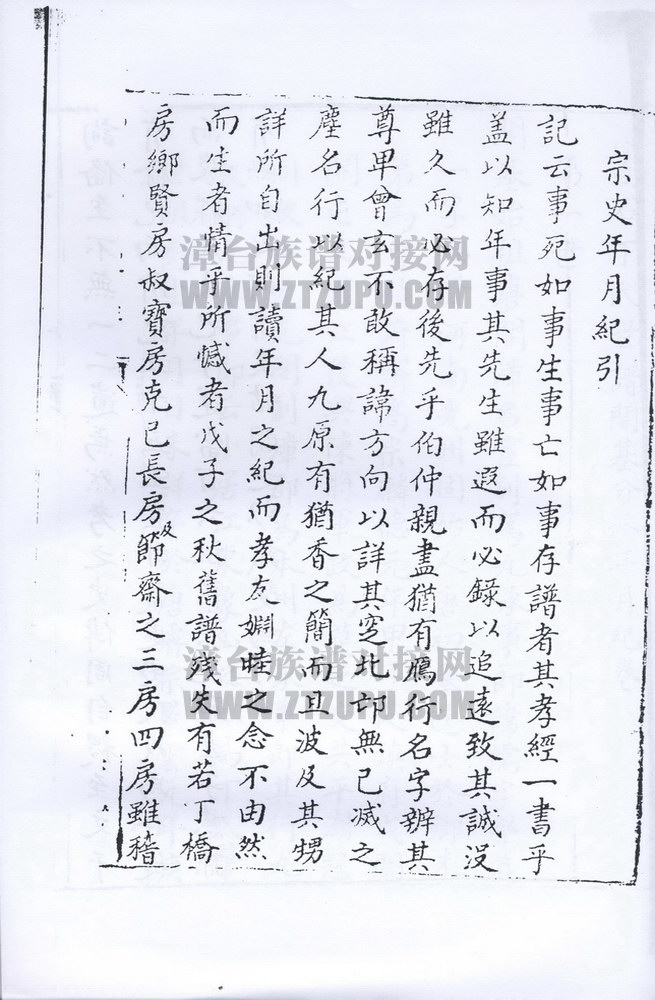 宗史年月紀引
記云事死如事生事亡如事存譜者其孝經一書乎
盖以知年事其先生雖遐而必錄以追遠致其誠没
雖久而必存後先乎伯仲親盡猶有鴈行名字辨其
尊卑曾玄不敢稱諱方向以詳其窆北邙無已滅之
塵名行以紀其人九原有猶香之簡而且波及其甥
詳所自出則讀年月之紀而孝友婣睦之念不由然
而生者情乎所憾者戊子之秋舊譜残失有若丁橋
房鄉賢房叔寶房克已長房及節齋之三房四房雖稽
漳台族谱对接网
WWW.ZTZUPU.COM
漳台族谱对接网
WWW.ZTZUPU.COM